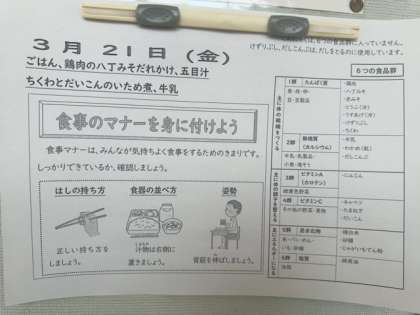 3月21日(金)
ごはん、鶏肉の八丁みそだれかけ、五目汁
ちくわとだいこんのいため煮、牛乳
食事のマナーを身に付けよう
食事マナーは、みんなが気持ちよく食事をするためのきまりです。
しっかりできているか、確認しましょう。
はしの持ち方
正しい持ち方を
しましょう。
食器の並べ方
汁物は右側に
置きましょう。
姿勢
背筋を伸ばしましょう。
6つの食品群に入っていません。
けずりぶし、だしこんぶは、だしをとるのに使用しています。
6つの食品群
主に体の組織をつくる
1群 たんぱく質
魚・肉・卵・
豆・豆製品
・鶏肉
・八丁みそ
・赤みそ
・とうふ(冷)
・うすあげ(冷)
・けずりぶし
・ちくわ
2群 無機質
(カルシウム)
牛乳・乳製品・
小魚・海そう
・牛乳
・わかめ(乾)
・だしこんぶ
主に体の調子を整える
3群 ビタミンA
(カロテン)
緑黄色野菜
・にんじん
4群 ビタミンC
その他の野菜・果物
・キャベツ
・たまねぎ
・だいこん
主にエネルギーになる
5群 炭水化物
米・パン・めん・
いも・砂糖
・精白米
・砂糖
・じゃがいもでん粉
6群 脂質
油脂
・綿実油